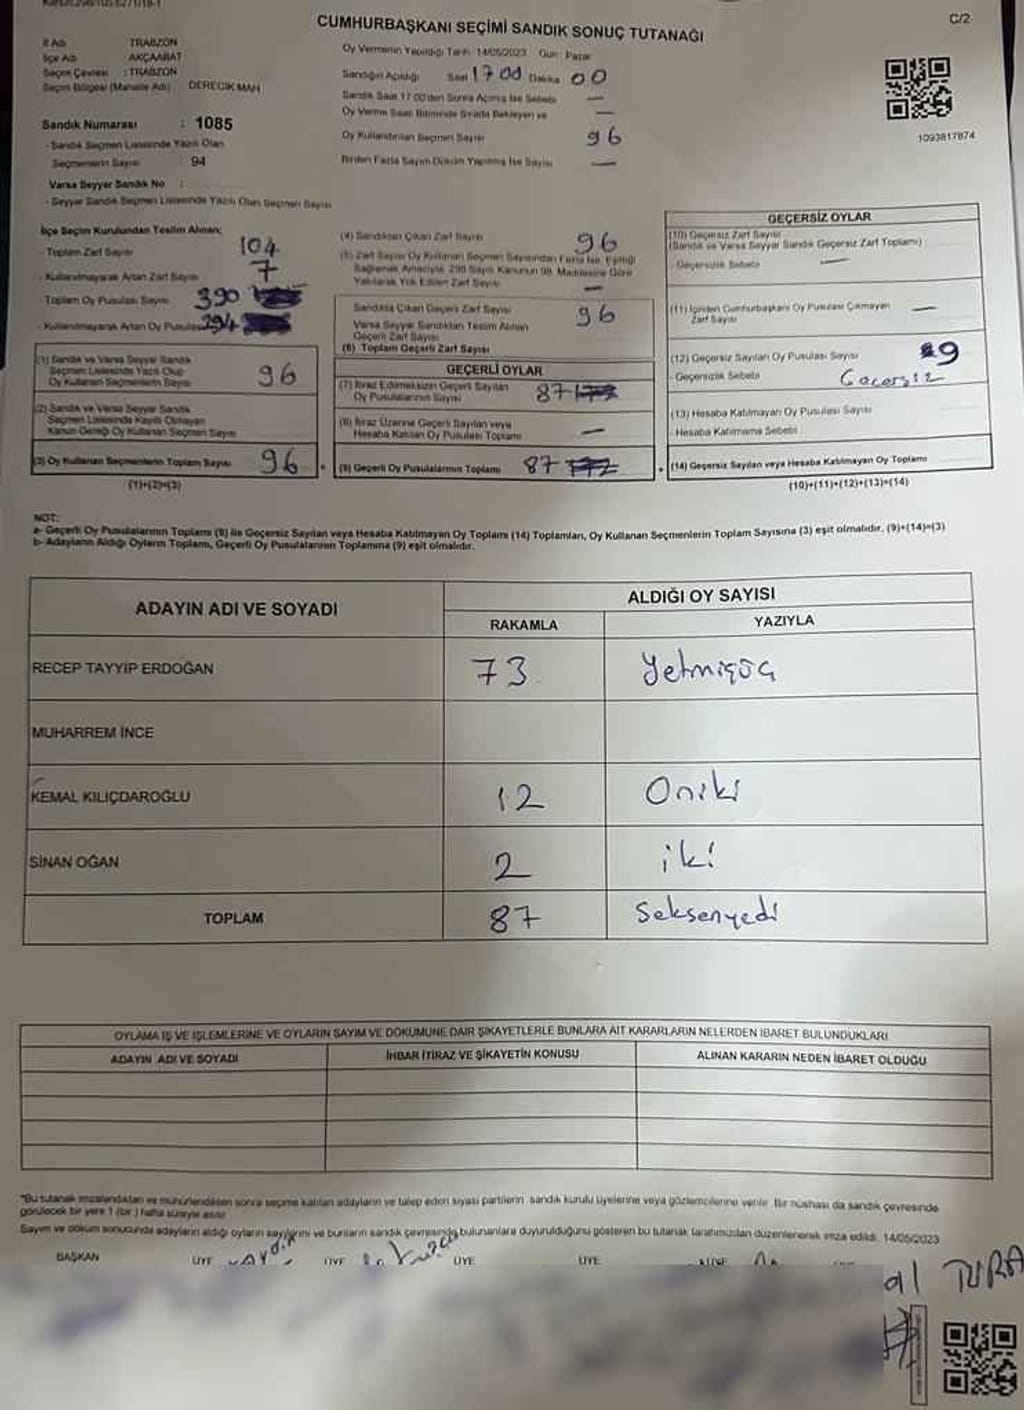 CUMHURBAŞKANI SEÇİMİ SANDIK SONUÇ TUTANAĞI
C/2
İl Adı : TRABZON
İlçe Adı : AKÇAABAT
Seçim Çevresi : TRABZON
Seçim Bölgesi (Mahalle Adı) DERECİK MAH
Oy Vermenin Yapıldığı Tarih: 14/05/2023 Gün: Pazar
Sandığın Açıldığı Saat 17 00 Dakika 00
Sandık Saat 17.00'den Sonra Açılmış İse Sebebi —
Oy Verme Saati Bitiminde Sırada Bekleyen ve —
Oy Kullandırılan Seçmen Sayısı 96
Birden Fazla Sayım Döküm Yapılmış İse Sayısı —
1093817874
Sandık Numarası : 1085
- Sandık Seçmen Listesinde Yazılı Olan
Seçmenlerin Sayısı : 94
Varsa Seyyar Sandık No :
- Seyyar Sandık Seçmen Listesinde Yazılı Olan Seçmen Sayısı
İlçe Seçim Kurulundan Teslim Alınan;
- Toplam Zarf Sayısı 104
- Kullanılmayarak Artan Zarf Sayısı 7
Toplam Oy Pusulası Sayısı 390
- Kullanılmayarak Artan Oy Pusulası 294
(1) Sandık ve Varsa Seyyar Sandık
Seçmen Listesinde Yazılı Olup
Oy Kullanan Seçmenlerin Sayısı 96
(2) Sandık ve Varsa Seyyar Sandık
Seçmen Listesinde Kayıtlı Olmayan
Kanun Gereği Oy Kullanan Seçmen Sayısı
(3) Oy Kullanan Seçmenlerin Toplam Sayısı 96
(1)+(2)=(3)
(4) Sandıktan Çıkan Zarf Sayısı 96
(5) Zarf Sayısı Oy Kullanan Seçmen Sayısından Fazla İse, Eşitliği
Sağlamak Amacıyla, 298 Sayılı Kanunun 98. Maddesine Göre
Yakılarak Yok Edilen Zarf Sayısı —
Sandıkta Çıkan Geçerli Zarf Sayısı 96
Varsa Seyyar Sandıktan Teslim Alınan
Geçerli Zarf Sayısı
(6) Toplam Geçerli Zarf Sayısı
GEÇERLİ OYLAR
(7) İtiraz Edilmeksizin Geçerli Sayılan
Oy Pusulalarının Sayısı 87
(8) İtiraz Üzerine Geçerli Sayılan veya
Hesaba Katılan Oy Pusulası Toplamı —
(9) Geçerli Oy Pusulalarının Toplamı 87
GEÇERSİZ OYLAR
(10) Geçersiz Zarf Sayısı
(Sandık ve Varsa Seyyar Sandık Geçersiz Zarf Toplamı)
- Geçersizlik Sebebi —
(11) İçinden Cumhurbaşkanı Oy Pusulası Çıkmayan
Zarf Sayısı —
(12) Geçersiz Sayılan Oy Pusulası Sayısı 9
- Geçersizlik Sebebi
(13) Hesaba Katılmayan Oy Pusulası Sayısı
- Hesaba Katılmama Sebebi
(14) Geçersiz Sayılan veya Hesaba Katılmayan Oy Toplamı
(10)+(11)+(12)+(13)=(14)
NOT:
a- Geçerli Oy Pusulalarının Toplamı (9) ile Geçersiz Sayılan veya Hesaba Katılmayan Oy Toplamı (14) Toplamları, Oy Kullanan Seçmenlerin Toplam Sayısına (3) eşit olmalıdır. (9)+(14)=(3)
b- Adayların Aldığı Oyların Toplamı, Geçerli Oy Pusulalarının Toplamına (9) eşit olmalıdır.
ADAYIN ADI VE SOYADI ALDIĞI OY SAYISI
RAKAMLA YAZIYLA
RECEP TAYYİP ERDOĞAN 73 Yetmişüç
MUHARREM İNCE
KEMAL KILIÇDAROĞLU 12 Oniki
SİNAN OĞAN 2 iki
TOPLAM 87 Seksenyedi
OYLAMA İŞ VE İŞLEMLERİNE VE OYLARIN SAYIM VE DÖKÜMÜNE DAİR ŞİKAYETLERLE BUNLARA AİT KARARLARIN NELERDEN İBARET BULUNDUKLARI
ADAYIN ADI VE SOYADI İHBAR İTİRAZ VE ŞİKAYETİN KONUSU ALINAN KARARIN NEDEN İBARET OLDUĞU
"Bu tutanak imzalandıktan ve mühürlendikten sonra seçime katılan adayların ve talep eden siyasi partilerin sandık kurulu üyelerine veya gözlemcilerine verilir. Bir nüshası da sandık çevresinde
görülecek bir yere 1 (bir) hafta süreyle asılır
Sayım ve döküm sonucunda adayların aldığı oyların sayılarını ve bunların sandık çevresinde bulunanlara duyurulduğunu gösteren bu tutanak tarafımızdan düzenlenerek imza edildi. 14/05/2023
BAŞKAN ÜYE ÜYE ÜYE ÜYE